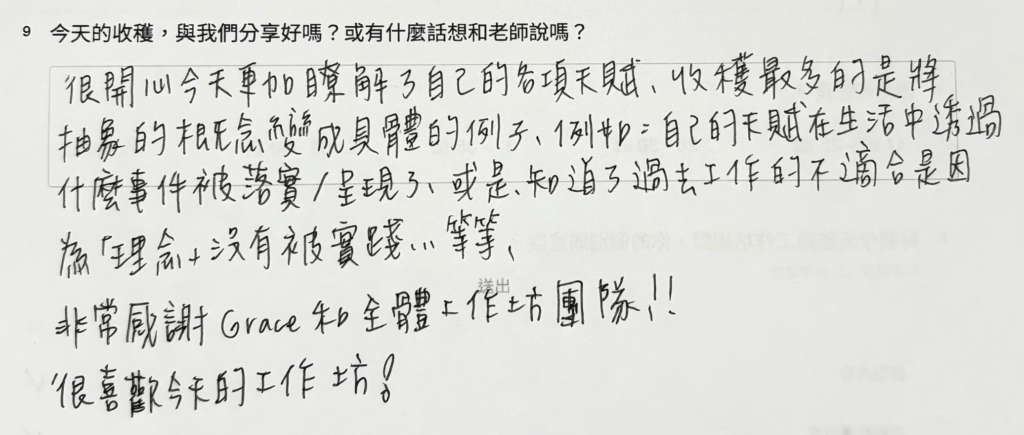 9 今天的收穫，與我們分享好嗎？或有什麼話想和老師說嗎？
很開心今天更加瞭解了自己的各項天賦、收穫最多的是將
抽象的概念變成具體的例子、例如：自己的天賦在生活中透過
什麼事件被落實/呈現了、或是、知道了過去工作的不適合是因
為「理念」沒有被實踐...等等、
送出
非常感謝 Grace 和全體工作坊團隊!!
很喜歡今天的工作坊!